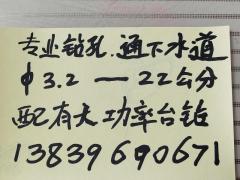 专业钻孔.通下水道
φ3.2—22公分
配有大功率台钻
13839690671